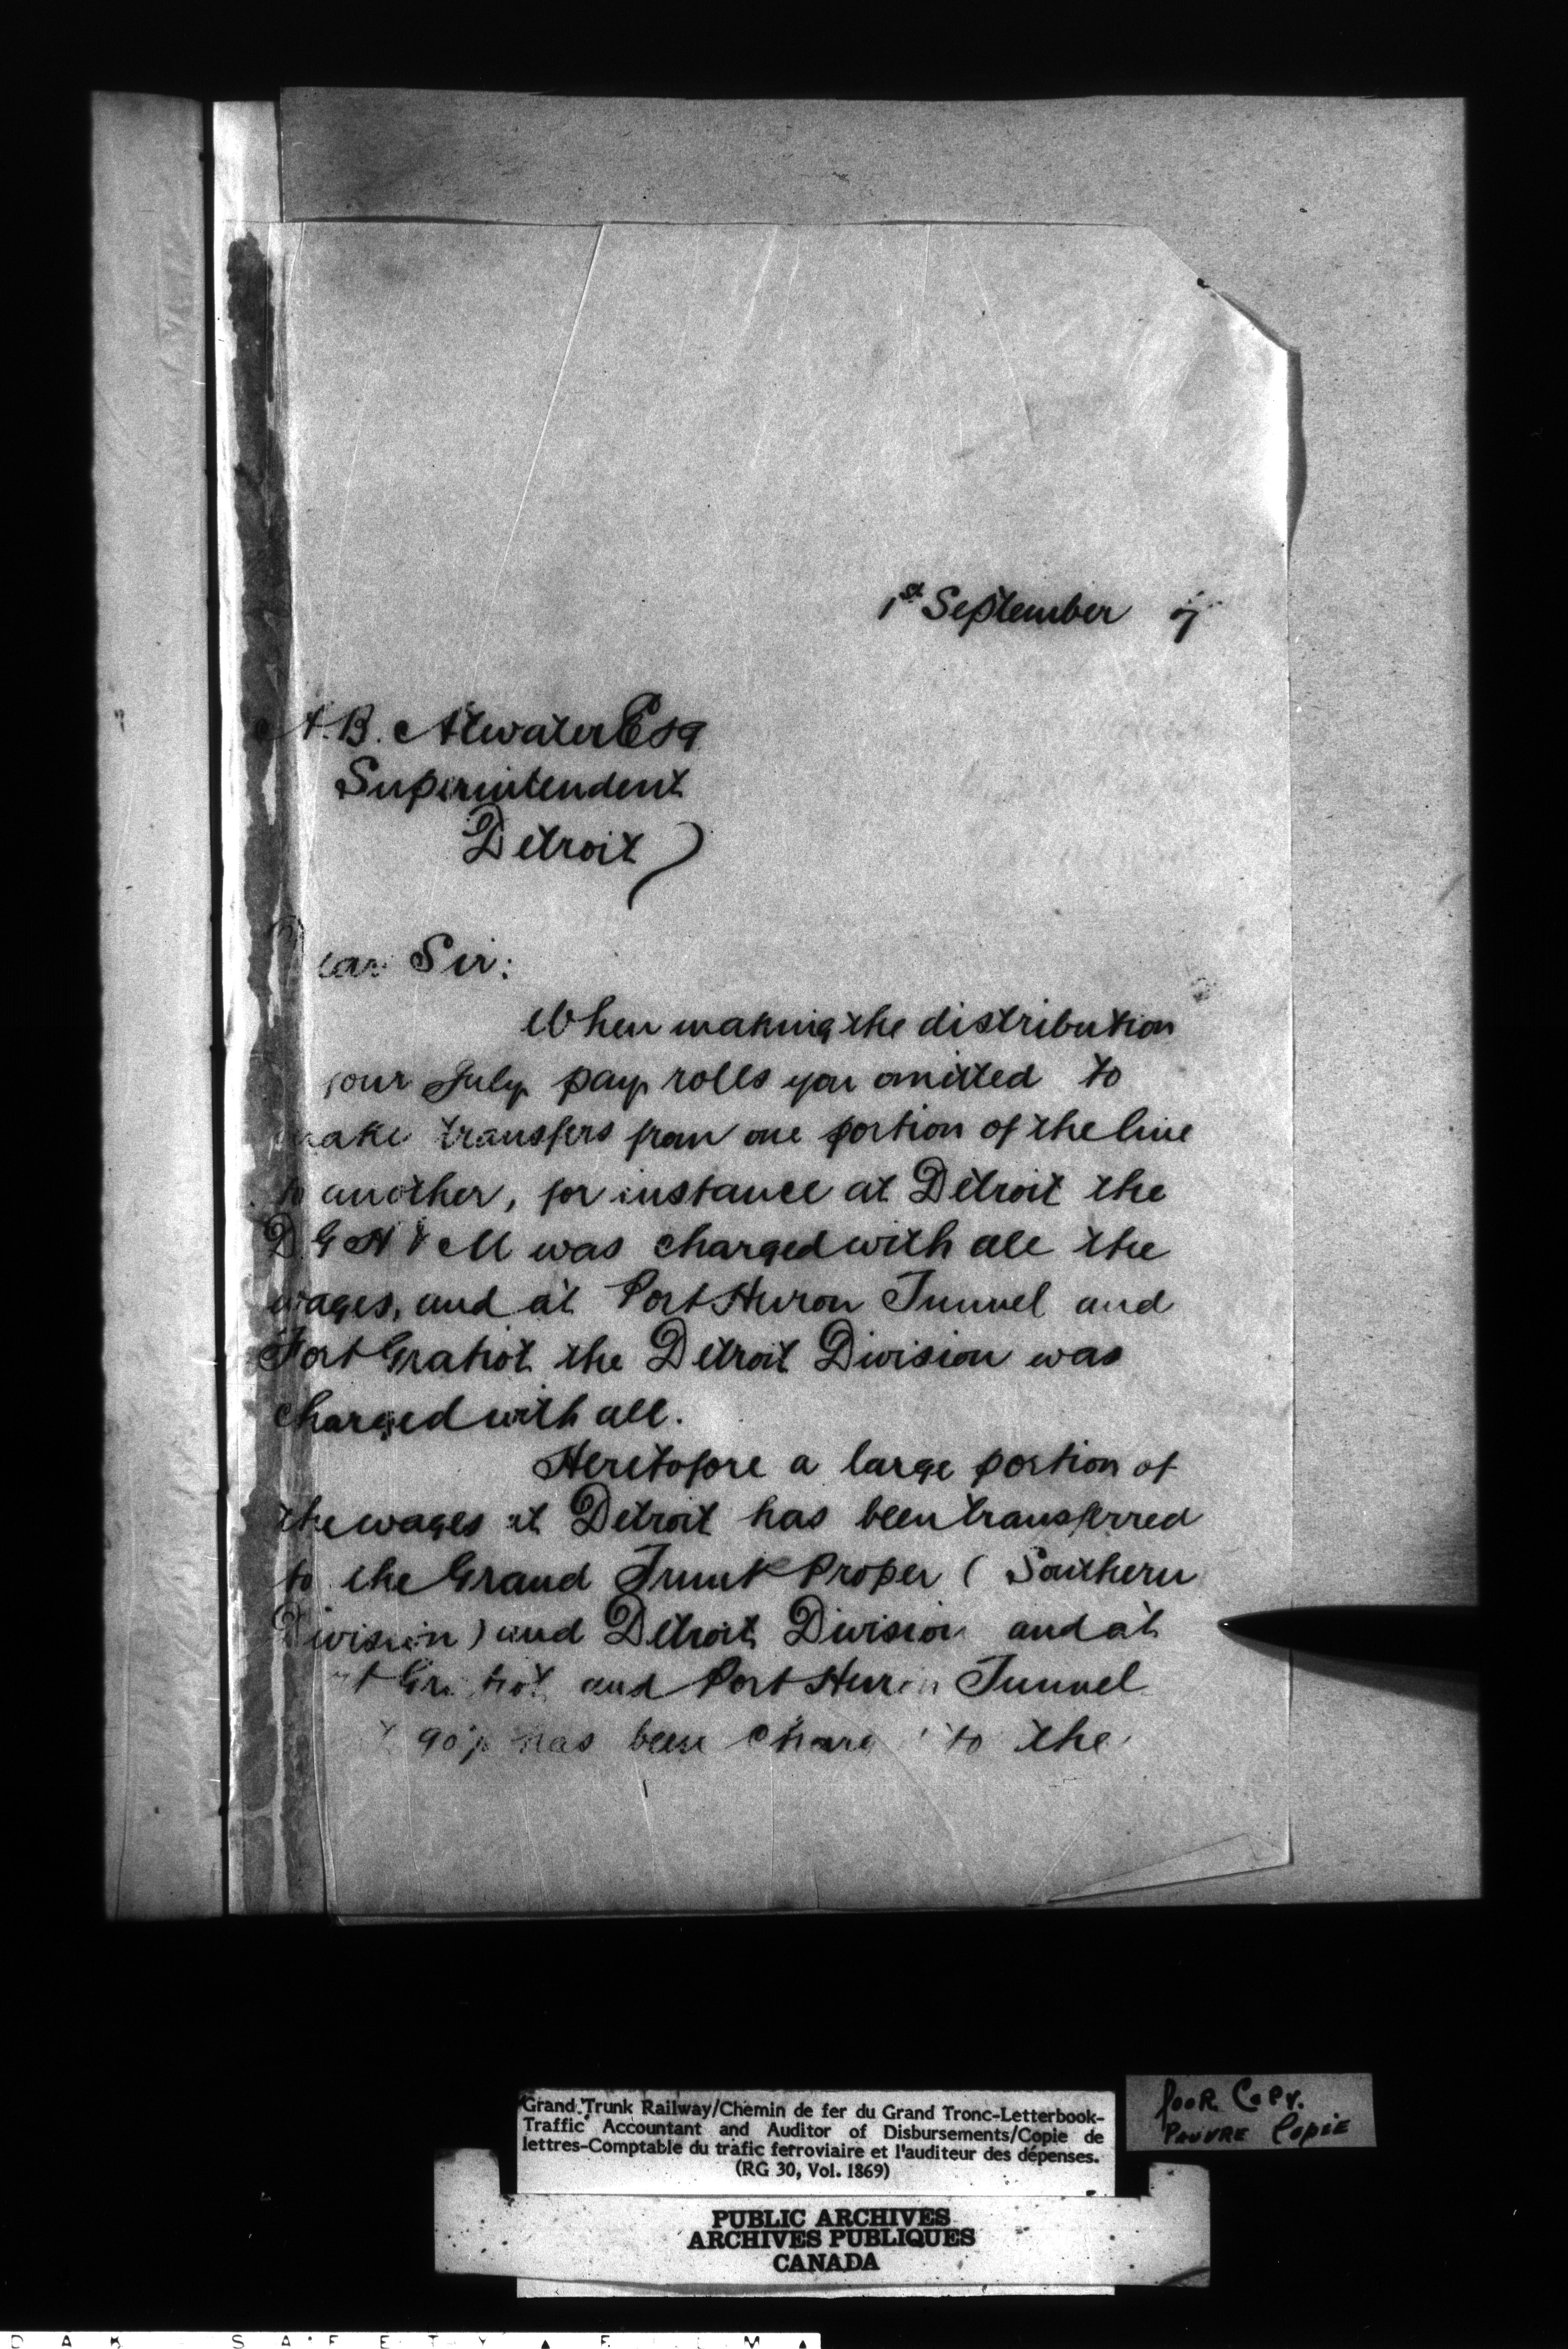 1st September 7
A. B. Atwater Esq
Superintendent
Detroit
Dear Sir:
When making the distribution
your July pay rolls you omitted to
make transfers from one portion of the line
to another, for instance at Detroit the
D. G H & M was charged with all the
wages, and at Port Huron Tunnel and
Fort Gratiot the Detroit Division was
charged with all.
Heretofore a large portion of
the wages at Detroit has been transferred
to the Grand Trunk Proper ( Southern
Division ) and Detroit Division and at
Gratiot and Port Huron Tunnel
90% has been to the
Grand Trunk Railway/Chemin de fer du Grand Tronc-Letterbook-
Traffic Accountant and Auditor of Disbursements/Copie de
lettres-Comptable du trafic ferroviaire et l'auditeur des dépenses.
(RG 30, Vol. 1869)
POOR COPY.
PAUVRE COPIE
PUBLIC ARCHIVES
ARCHIVES PUBLIQUES
CANADA
SAFETY FILM